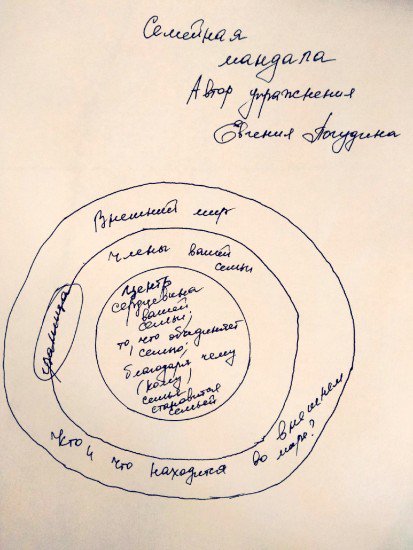 Семейная
мандала
Автор упражнения
Евгения Погудина
Внешний мир
Члены вашей
семьи
Центр
сердцевина
вашей
семьи;
то, что объединяет
семью;
благодаря чему
(кому)
семья
становится
семьей
граница
Кто и что находится во внешнем
мире?